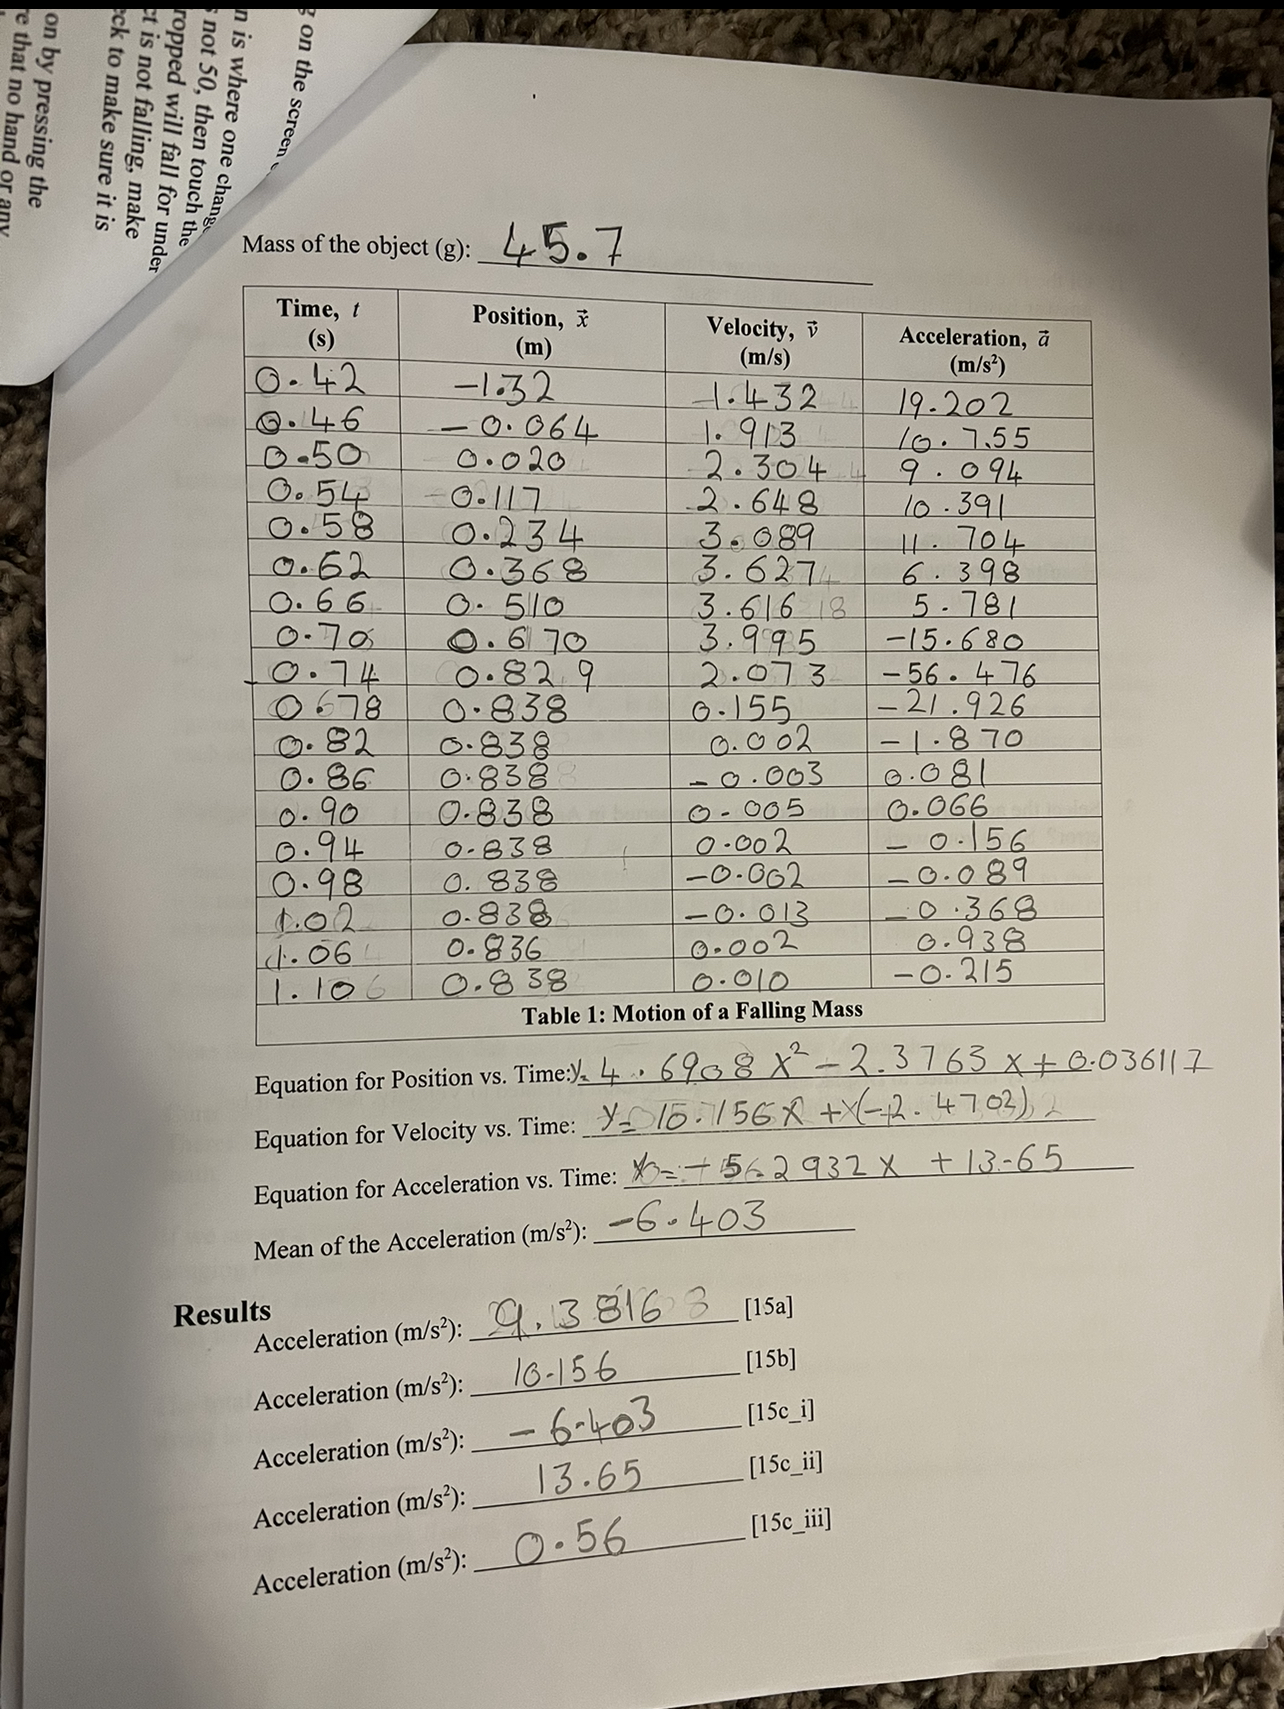 g on the screen
n is where one chang
s not 50, then touch the
ropped will fall for under
ct is not falling, make
eck to make sure it is
on by pressing the
re that no hand or any
Mass of the object (g): 45.7
Time, t (s) Position, x⃗ (m) Velocity, v⃗ (m/s) Acceleration, a⃗ (m/s²)
0.42 -1.32 1.432 19.202
0.46 -0.064 1.913 10.755
0.50 0.020 2.304 9.094
0.54 0.117 2.648 10.391
0.58 0.234 3.089 11.704
0.62 0.368 3.627 6.398
0.66 0.510 3.616 5.781
0.70 0.670 3.995 -15.680
0.74 0.829 2.073 -56.476
0.78 0.838 0.155 -21.926
0.82 0.838 0.002 -1.870
0.86 0.838 -0.003 0.081
0.90 0.838 0.005 0.066
0.94 0.838 0.002 -0.156
0.98 0.838 -0.002 -0.089
1.02 0.838 -0.013 -0.368
1.06 0.836 0.002 0.938
1.10 0.838 0.010 -0.215
Table 1: Motion of a Falling Mass
Equation for Position vs. Time: y= 4.6908x² - 2.3763x + 0.036117
Equation for Velocity vs. Time: y= 10.156x + (-2.4702)
Equation for Acceleration vs. Time: 2932x + 13.65
Mean of the Acceleration (m/s²): -6.403
Results
Acceleration (m/s²): 9.3816 [15a]
Acceleration (m/s²): 10.156 [15b]
Acceleration (m/s²): -6.403 [15c_i]
Acceleration (m/s²): 13.65 [15c_ii]
Acceleration (m/s²): 0.56 [15c_iii]